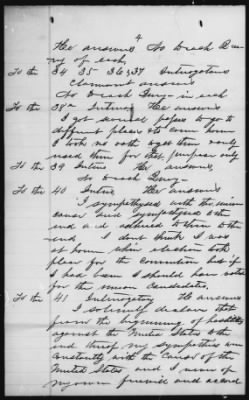 4
He answers No to each Que
ry of each.
To the 34 35 36 & 37 Interrogatories
Claimant answers
No to each Query in each
To the 38th Interrog He answers
I got several passes to go to
different places & to come home
I took no oath to get them & only
used them for that purpose only
To the 39 Inter He answers
No to each Query
To the 40 Inter He answers
I sympathysed with the union
cause and sympathysed to the
end and adhered to them to the
end. I dont think I was
at home when election took
place for the convention but if
I had been I should have voted
for the union candidates.
To the 41 Interrogatory He answers
I solemnly declare that
from the beginning of hostility
against the United States to the
end thereof my sympathies were
constantly with the cause of the
United States and I never of
my own freewill and accord